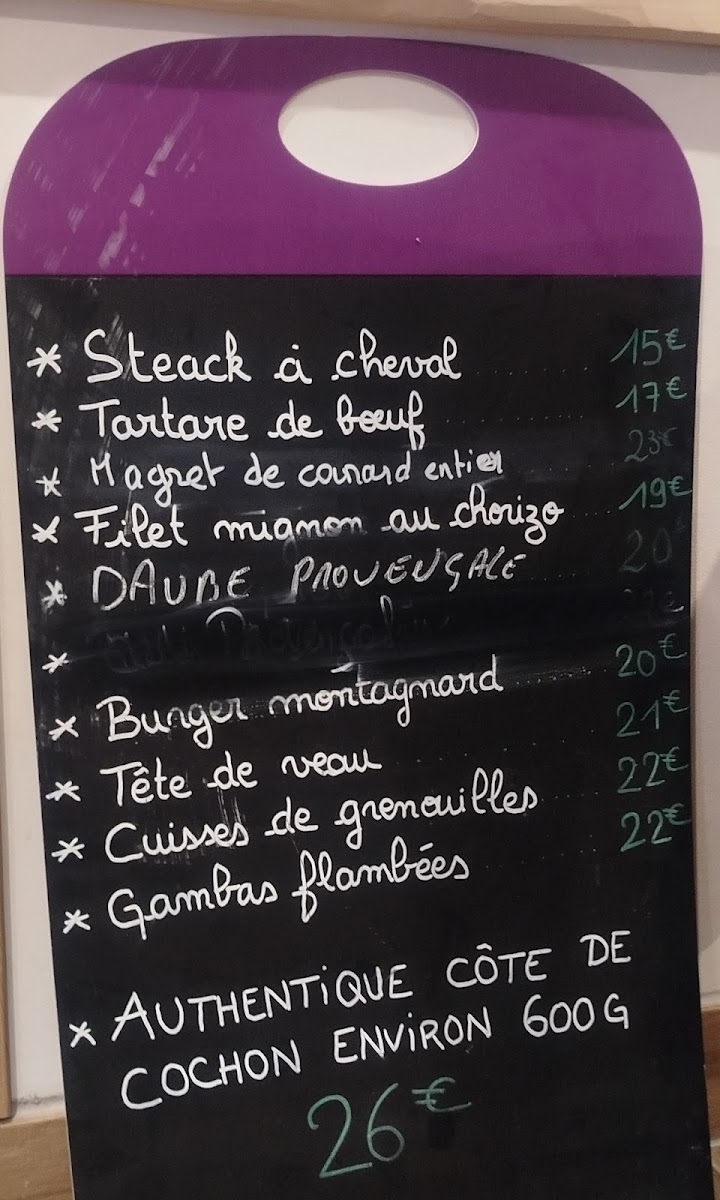 * Steack à cheval ........ 15€
* Tartare de bœuf ........ 17€
* Magret de canard entier ........ 23€
* Filet mignon au chorizo ........ 19€
* DAUBE PROVENÇALE ........ 20€
*
* Burger montagnard ........ 20€
* Tête de veau ........ 21€
* Cuisses de grenouilles ........ 22€
* Gambas flambées ........ 22€
* AUTHENTIQUE CÔTE DE
COCHON ENVIRON 600G
26€